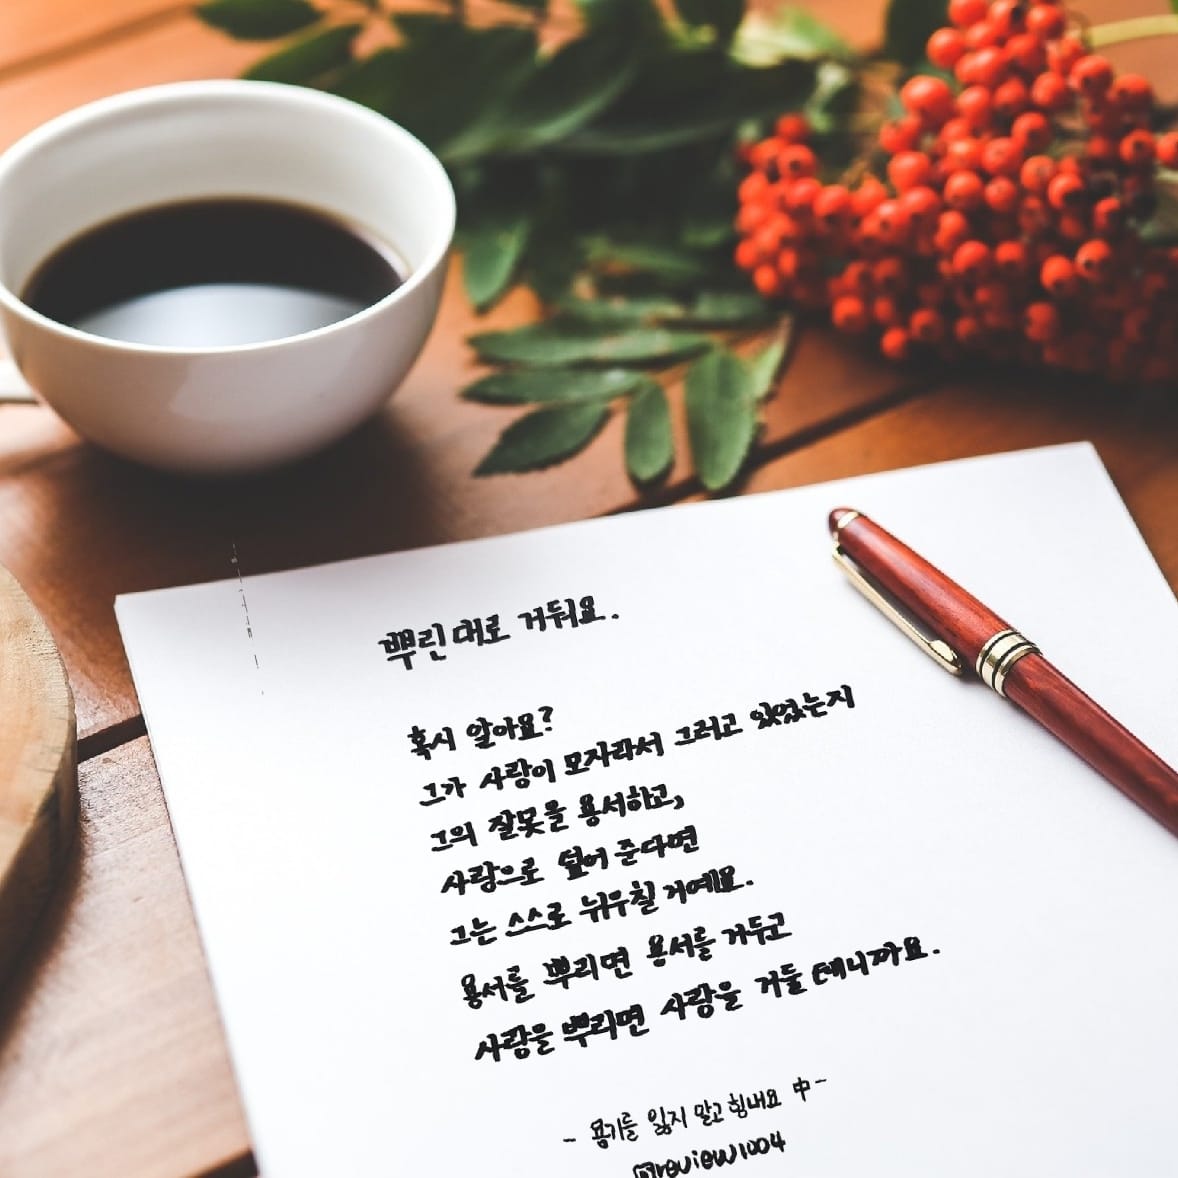 뿌린대로 거둬요.
혹시 알아요?
그가 사랑이 모자라서 그러고 있었는지
그의 잘못을 용서하고,
사랑으로 덮어 준다면
그는 스스로 뉘우칠 거예요.
용서를 뿌리면 용서를 거두고
사랑을 뿌리면 사랑을 거둘 테니까요.
- 용기를 잃지 말고 힘내요 中-
@review1004